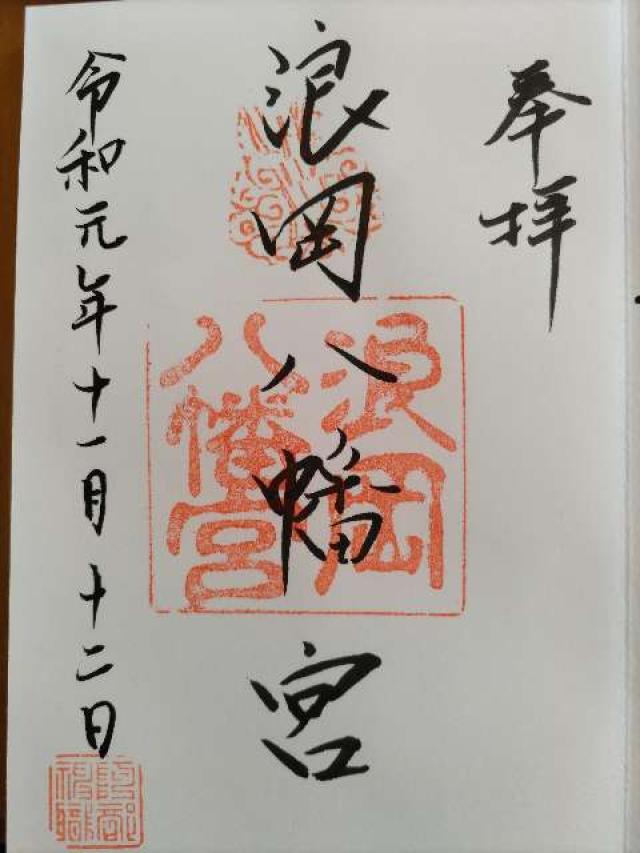 奉拝
浪岡八幡宮
浪岡
八幡宮
令和元年十一月十二日